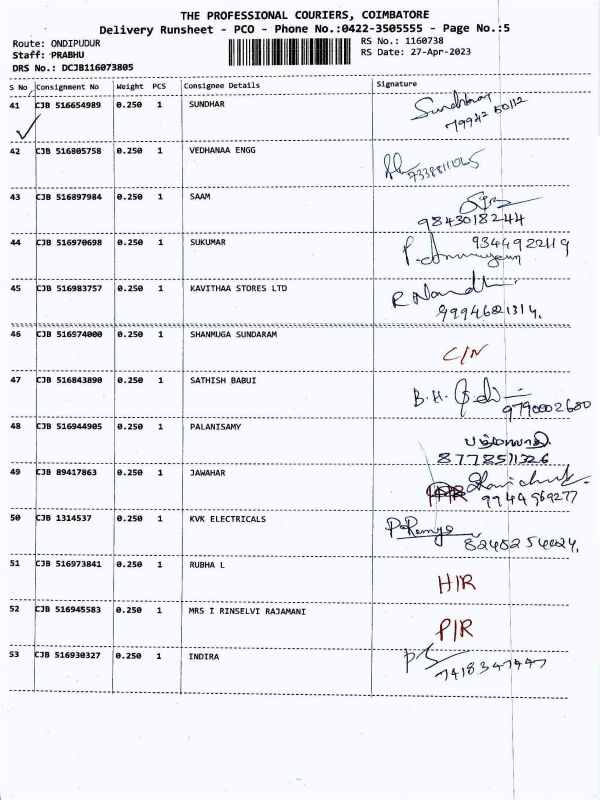 THE PROFESSIONAL COURIERS, COIMBATORE
Delivery Runsheet - PCO - Phone No.:0422-3505555 - Page No.:5
Route: ONDIPUDUR RS No.: 1160738
Staff: PRABHU RS Date: 27-Apr-2023
DRS No.: DCJB116073805
S No Consignment No Weight PCS Consignee Details Signature
41 CJB 516654989 0.250 1 SUNDHAR
42 CJB 516805758 0.250 1 VEDHANAA ENGG
7338811065
43 CJB 516897984 0.250 1 SAAM
9843018244
44 CJB 516970698 0.250 1 SUKUMAR 9344922119
45 CJB 516983757 0.250 1 KAVITHAA STORES LTD R Nandh
99946821314.
46 CJB 516974000 0.250 1 SHANMUGA SUNDARAM
C/N
47 CJB 516843890 0.250 1 SATHISH BABUI B.H.
9790002680
48 CJB 516944905 0.250 1 PALANISAMY
8778511326
49 CJB 89417863 0.250 1 JAWAHAR
9944969277
50 CJB 1314537 0.250 1 KVK ELECTRICALS P. Ramya
51 CJB 516973841 0.250 1 RUBHA L
H/R
52 CJB 516945583 0.250 1 MRS I RINSELVI RAJAMANI
P/R
53 CJB 516930327 0.250 1 INDIRA
7418347447